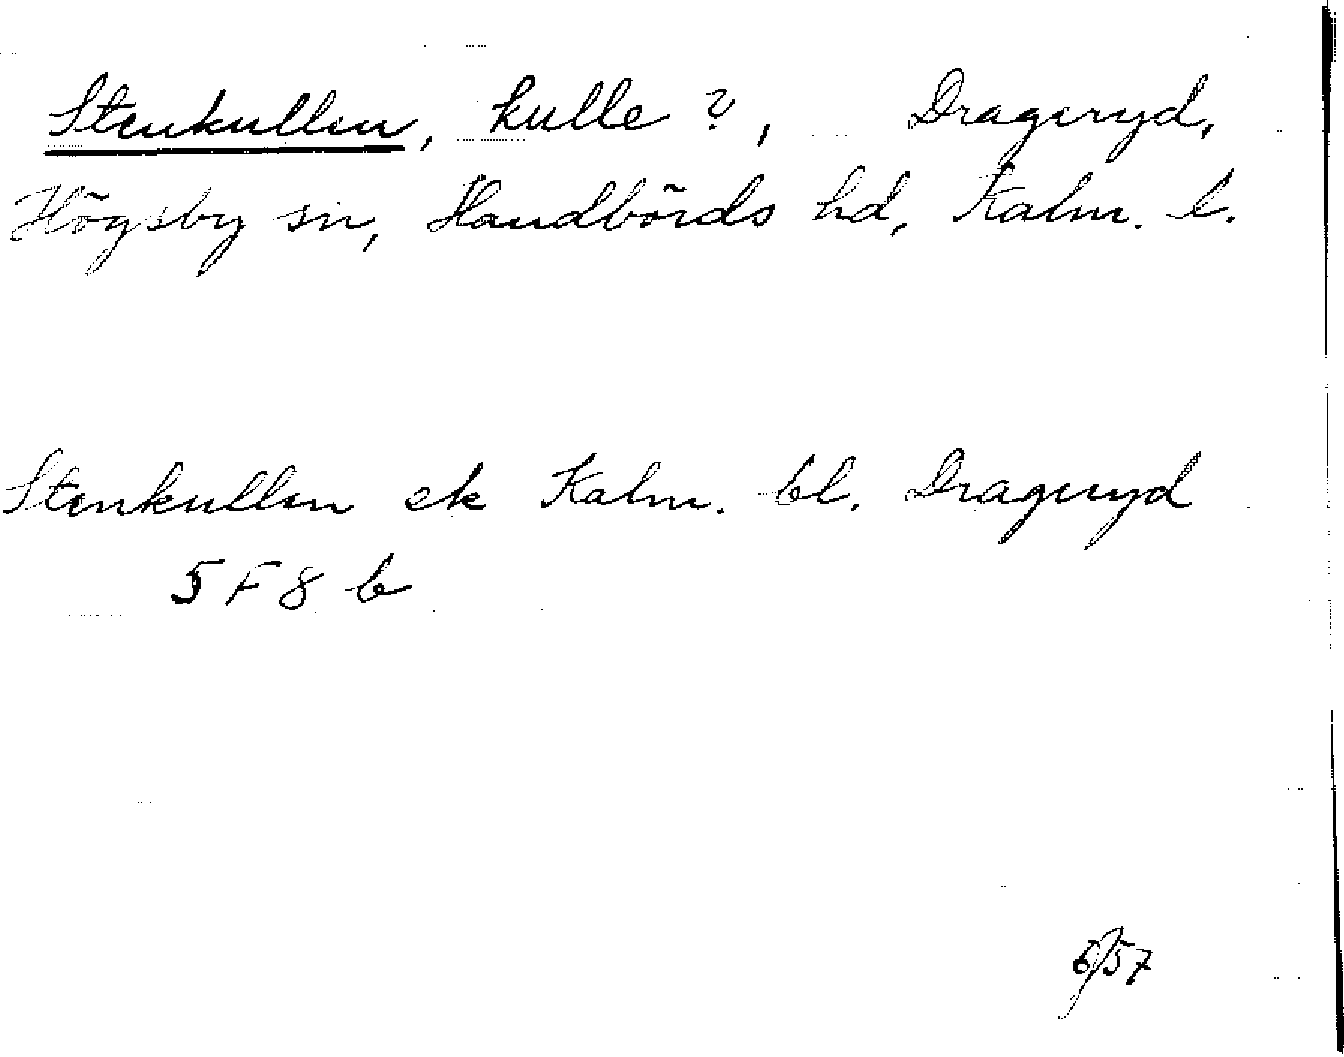 Stenkullen, kulle ?, Drageryd,
Högsby sn, Handbörds hd, Kalm. l.
Stenkullen ek Kalm. bl. Drageryd
5 F 8 b
6/57